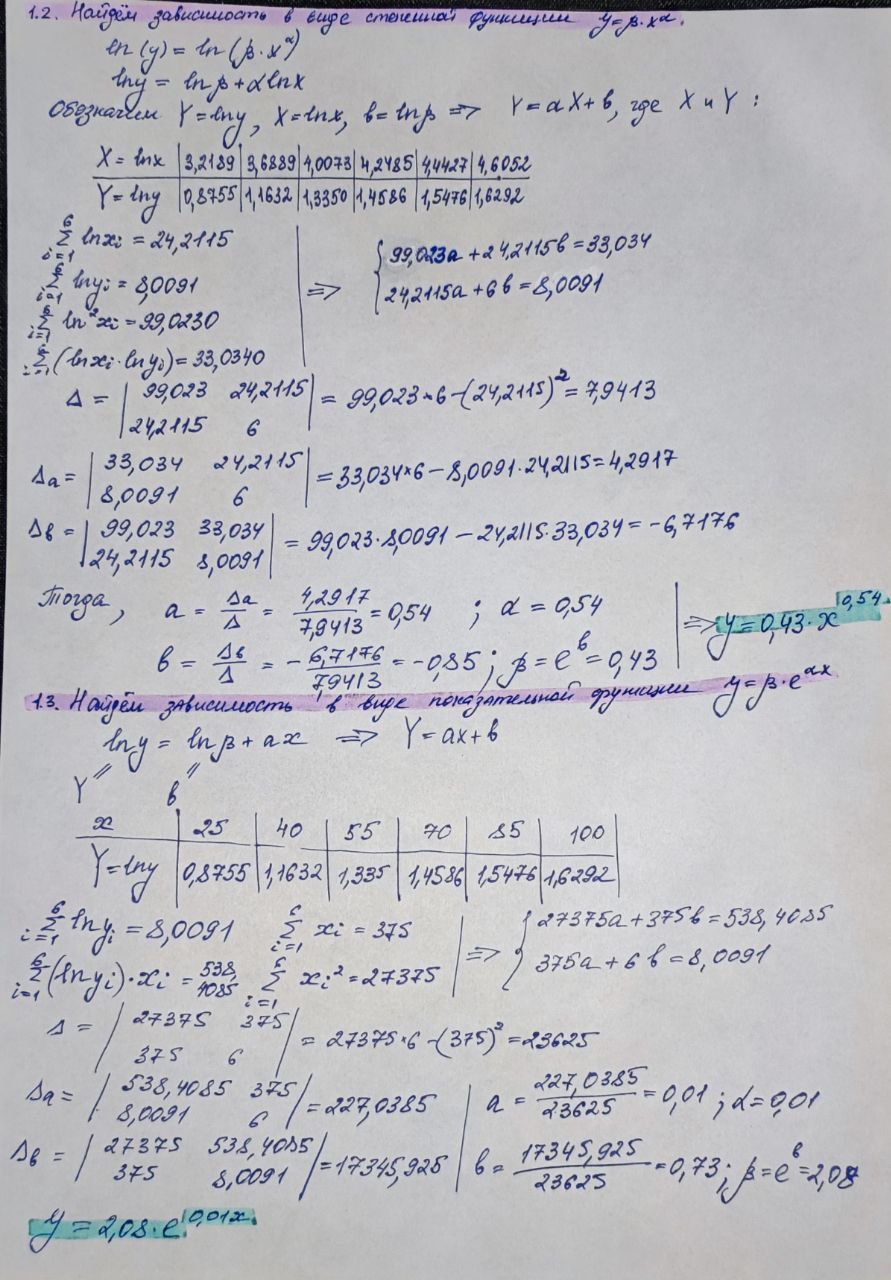 1.2. Найдём зависимость в виде степенной функции y=β·x^α.
ln(y) = ln(β·x^α)
lny = lnβ+αlnx
Обозначим Y=lny, X=lnx, b=lnβ => Y=aX+b, где X и Y :
X=lnx | 3,2189 | 3,6889 | 4,0073 | 4,2485 | 4,4427 | 4,6052
Y=lny | 0,8755 | 1,1632 | 1,3350 | 1,4586 | 1,5476 | 1,6292
∑_{i=1}^{6} lnxi = 24,2115
∑_{i=1}^{6} lnyi = 8,0091
∑_{i=1}^{6} ln²xi = 99,0230
∑_{i=1}^{6} (lnxi·lnyi) = 33,0340
=> { 99,023a + 24,2115b = 33,034
24,2115a + 6b = 8,0091
Δ = | 99,023 24,2115 | = 99,023*6-(24,2115)² = 7,9413
| 24,2115 6 |
Δa = | 33,034 24,2115 | = 33,034*6 - 8,0091·24,2115 = 4,2917
| 8,0091 6 |
Δb = | 99,023 33,034 | = 99,023·8,0091 - 24,2115·33,034 = -6,7176
| 24,2115 8,0091 |
Тогда, a = Δa/Δ = 4,2917/7,9413 = 0,54 ; α = 0,54
b = Δb/Δ = -6,7176/7,9413 = -0,85; β=e^b=0,43
=> y=0,43·x^0,54.
1.3. Найдём зависимость в виде показательной функции y=β·e^αx
lny = lnβ+ax => Y=ax+b
Y'' b''
x | 25 | 40 | 55 | 70 | 85 | 100
Y=lny | 0,8755 | 1,1632 | 1,335 | 1,4586 | 1,5476 | 1,6292
∑_{i=1}^{6} lnyi = 8,0091 ∑_{i=1}^{6} xi = 375
∑_{i=1}^{6} (lnyi)·xi = 538,4085 ∑_{i=1}^{6} xi² = 27375
=> { 27375a + 375b = 538,4085
375a + 6b = 8,0091
Δ = | 27375 375 | = 27375*6-(375)² = 23625
| 375 6 |
Δa = | 538,4085 375 | = 227,0385
| 8,0091 6 |
a = 227,0385/23625 = 0,01 ; α=0,01
Δb = | 27375 538,4085 | = 17345,925
| 375 8,0091 |
b = 17345,925/23625 = 0,73; β=e^b=2,08
y = 2,08·e^0,01x.